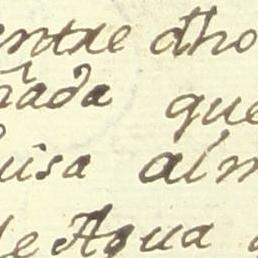 entre dho
ñada que
uisa alm
de Agua